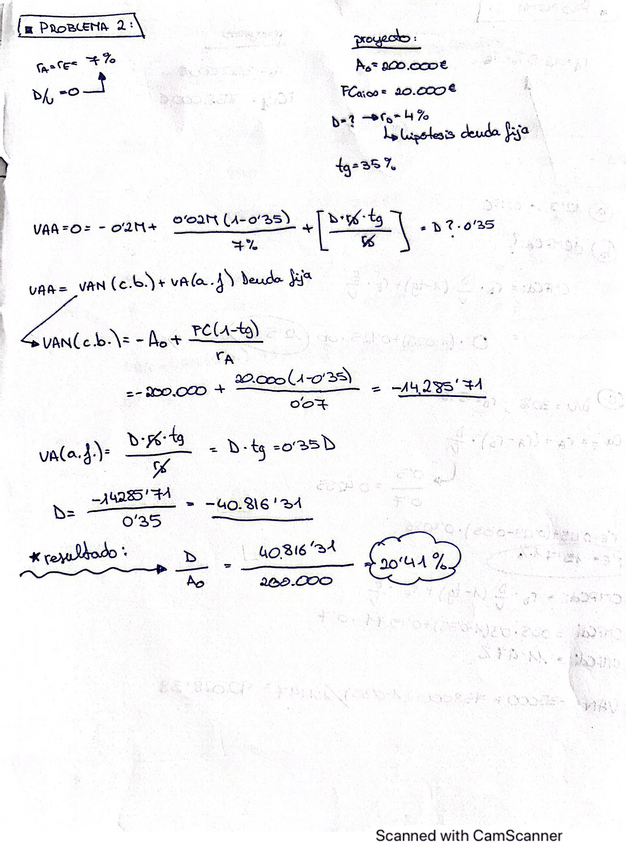 ▪ PROBLEMA 2:
rA=rE= 7%
D/V =0
proyecto:
A₀=200.000€
FCaños= 20.000€
D=? → rD=4%
↳ hipótesis deuda fija
tg=35%
VAA=0= -0'2M+ 0'02M(1-0'35)/7% + [D·rD·tg/rD] = D?·0'35
VAA= VAN(c.b.)+VA(a.f) Deuda fija
VAN(c.b.)= -A₀ + FC(1-tg)/rA
=-200.000 + 20.000(1-0'35)/0'07 = -14,285'71
VA(a.f.)= D·rD·tg/rD = D·tg=0'35D
D= -14285'71/0'35 = -40.816'31
*resultado: → D/A₀ = 40.816'31/200.000 = 20'41%
Scanned with CamScanner